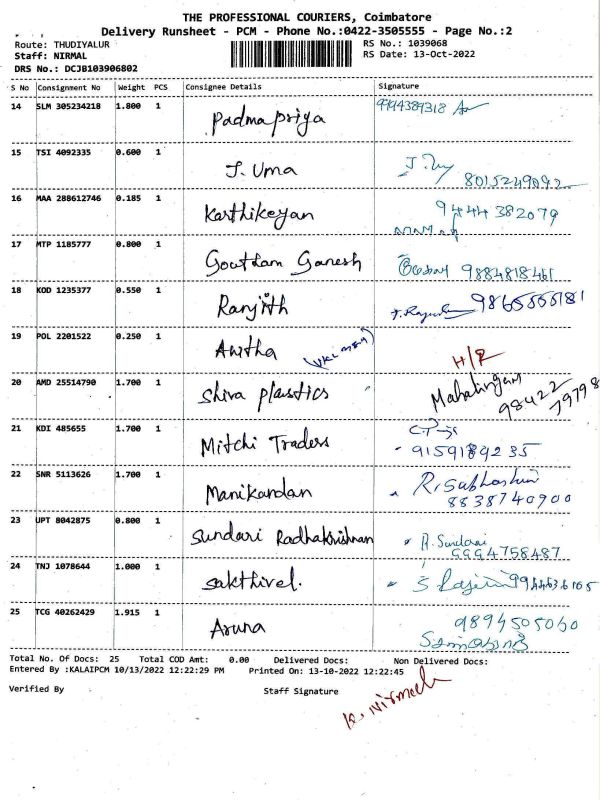 THE PROFESSIONAL COURIERS, Coimbatore
Delivery Runsheet - PCM - Phone No.:0422-3505555 - Page No.:2
Route: THUDIYALUR
RS No.: 1039068
Staff: NIRMAL
RS Date: 13-Oct-2022
DRS No.: DCJB103906802
S No Consignment No Weight PCS Consignee Details Signature
14 SLM 305234218 1.800 1 Padmapriya 9194389318
15 TSI 4092335 0.600 1 J. Uma
8015249092
16 MAA 288612746 0.185 1 Karthikeyan 9444382079
17 MTP 1185777 0.800 1 Goutham Ganesh 9884818461
18 KOD 1235377 0.550 1 Ranjith 9865555181
19 POL 2201522 0.250 1 Anitha
H/R
20 AMD 25514790 1.700 1 Shiva plastics Mahalingam
98422
79798
21 KDI 485655 1.700 1 Mitchi Traders
9159189235
22 SNR 5113626 1.700 1 Manikandan
8838740900
23 UPT 8042875 0.800 1 Sundari Radhakrishnan R. Sundari
9994758487
24 TNJ 1078644 1.000 1 Sakthivel.
25 TCG 40262429 1.915 1 Aruna 9894505060
Total No. Of Docs: 25 Total COD Amt: 0.00 Delivered Docs: Non Delivered Docs:
Entered By :KALAIPCM 10/13/2022 12:22:29 PM Printed On: 13-10-2022 12:22:45
Verified By Staff Signature
K. Nirmal